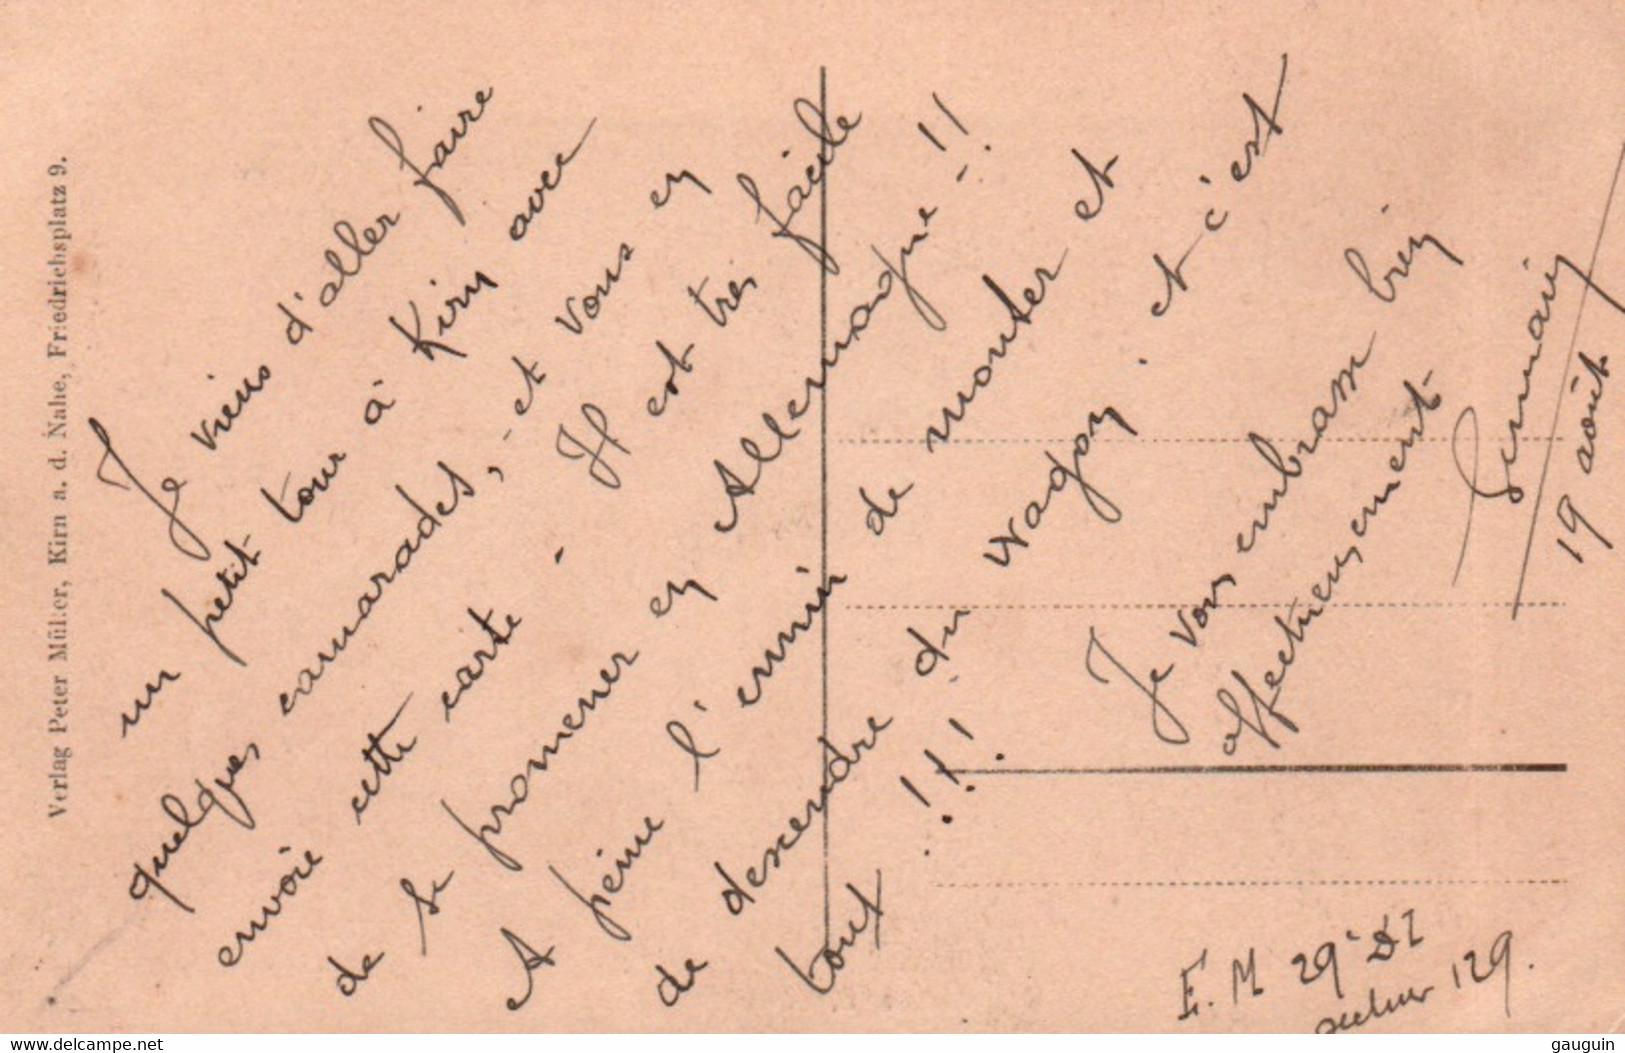 Verlag Peter Müller, Kirn a. d. Nahe, Friedrichsplatz 9.
Je viens d'aller faire
un petit tour à Kirn avec
quelques camarades, - et vous en
envoie cette carte - Il est très facile
de se promener en Allemagne - !!
A peine l'ennui de monter et
de descendre du wagon ' et c'est
tout !!!
Je vous embrasse bien
affectueusement -
19 août
E. M 29e DI
secteur 129.
www.delcampe.net
gauguin